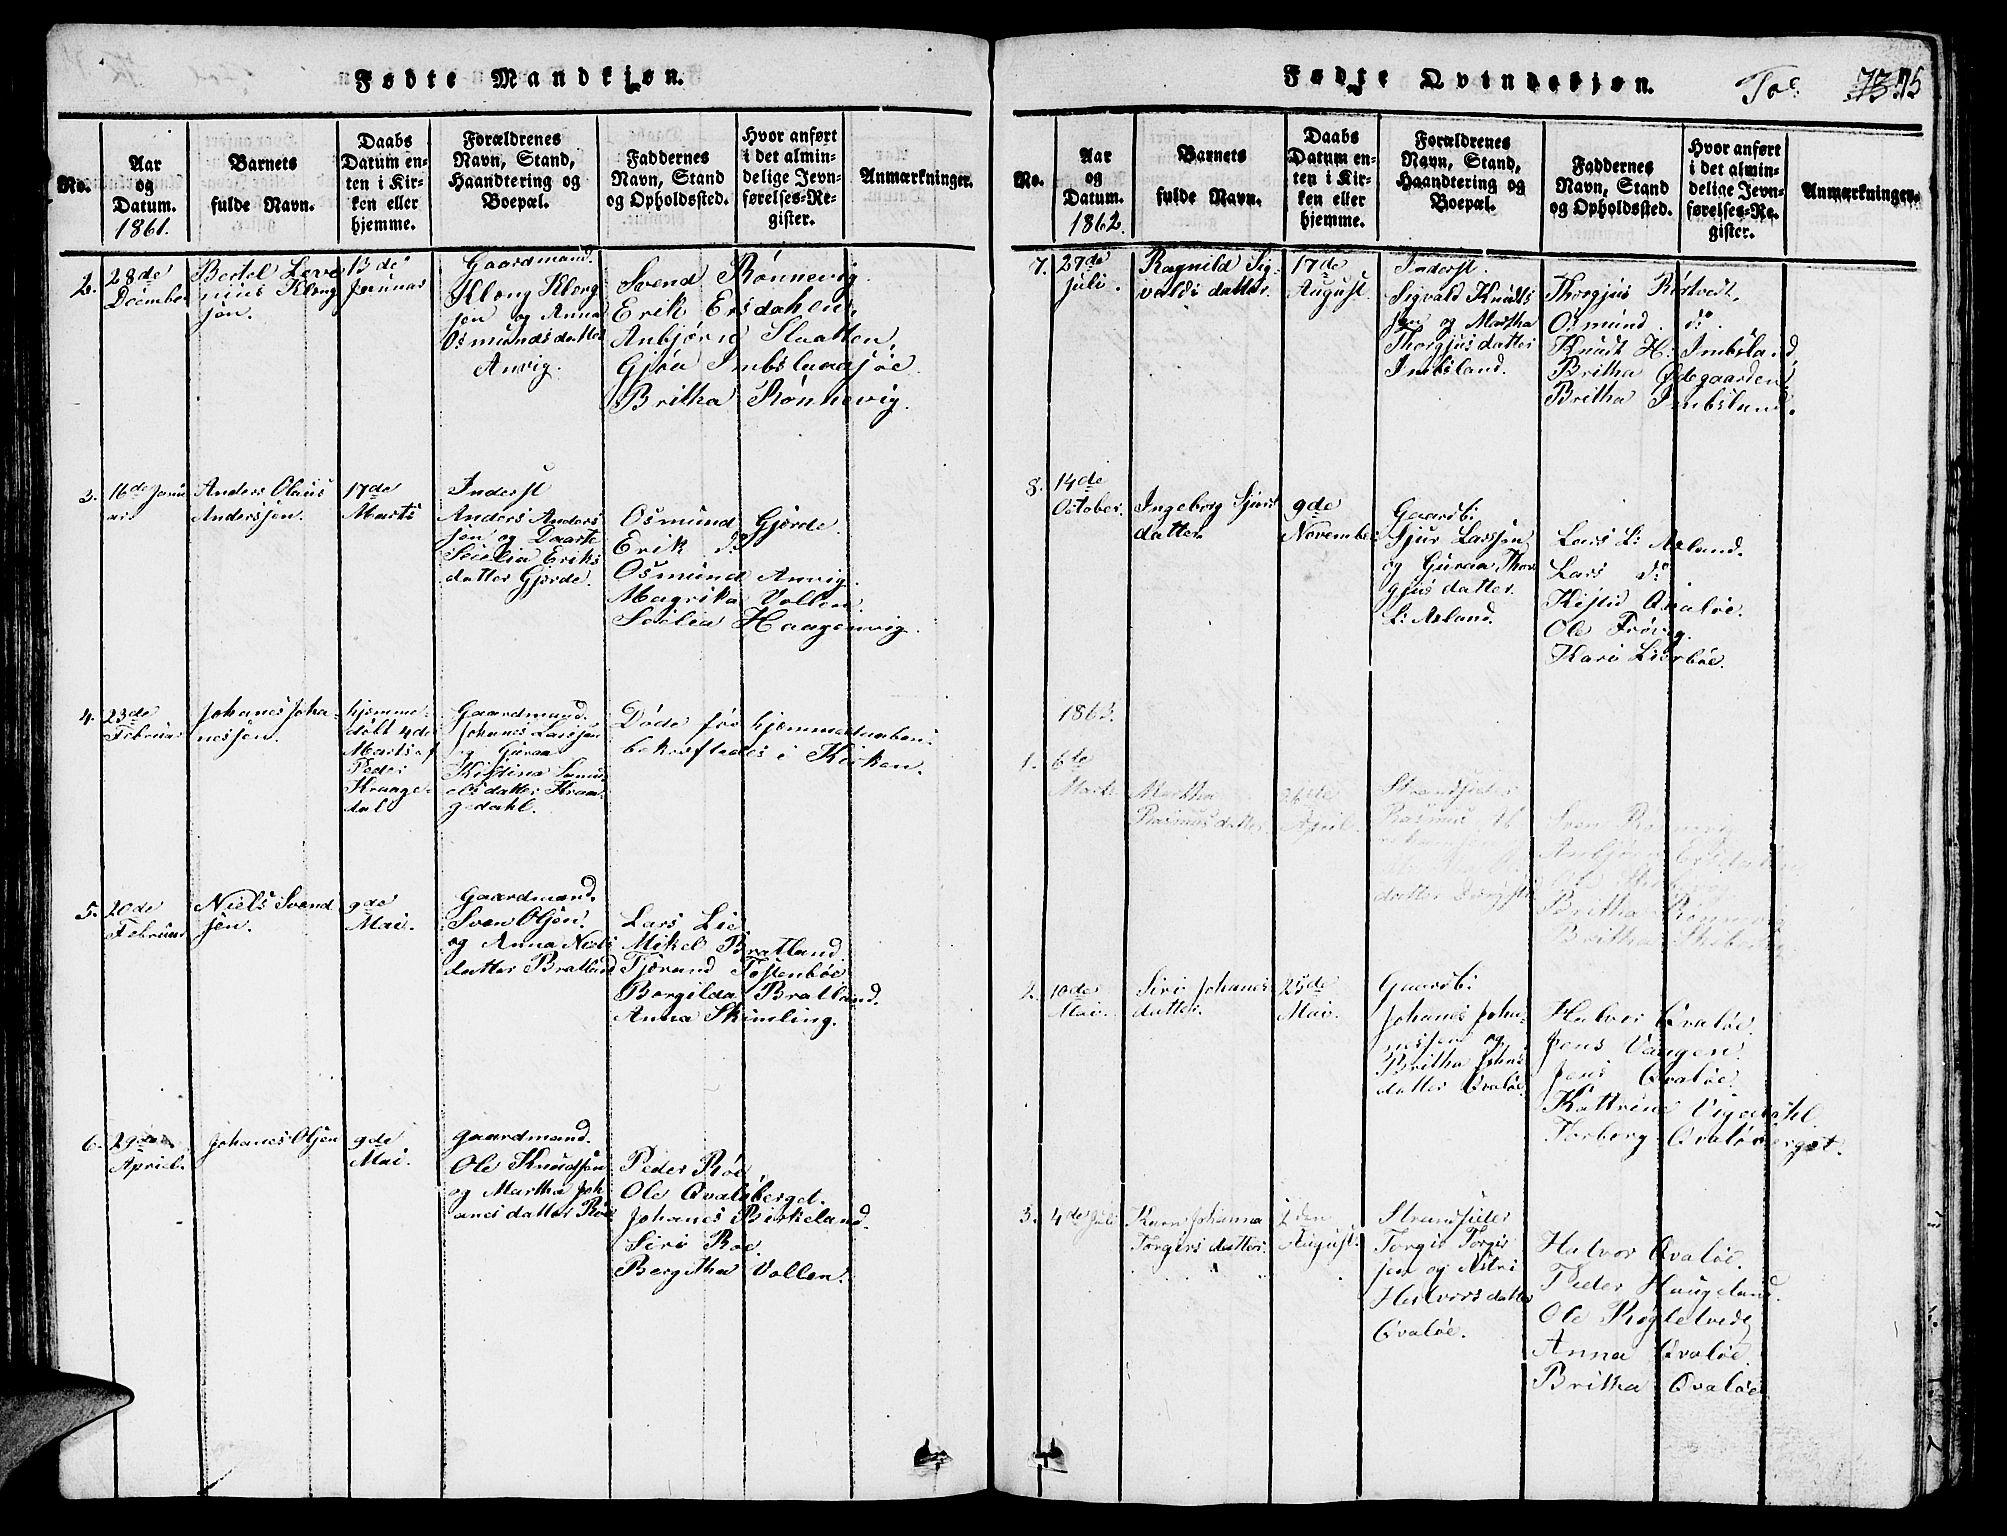 Fødte Mandkjøn.
No.
Aar
og
Datum.
1861.
Barnets
fulde Navn.
Daabs
Datum en-
ten i Kir-
ken eller
hjemme.
Forældrenes
Navn, Stand,
Haandtering og
Boepæl.
Faddernes
Navn, Stand
og Opholdssted.
Hvor anført
i det almin-
delige Jevn-
førelses-Re-
gister.
Anmærkninger.
2.
28de
Deember
Bertel Leve
nius Klong
sen.
13de
Januar
Gaardmand.
Klong Klong
sen og Anna
Osmundsdatter
Anvig.
Svend Rønnevig.
Erik Ersdahlie,
Anbjørn Slaatten,
Gjøa Imbslandsjøe.
Britha Rønnevig.
3.
16de Janu
ar.
Anders Olaus
Anderssen.
17de
Marts
Inderst
Anders Anders
sen og Daarte
Siselia Eriks
datter Gjerde.
Osmund Gjerde.
Erik do
Osmund Anvig.
Magrika Vollen.
Siselia Haagenvig.
4.
23de
Februar
Johanes Joha-
nessen.
hjemme-
døbt 4de
Marts af
Peder
Kraage-
dal
Gaardmand.
Johanes Larssen
og Guraa
Kistina Samu
elsdatter Kraa-
gedahl.
Døde før hjemmedaaben
bekræftedes i Kirken.
5.
20de
Februar
Niels Svend
sen.
9de
Mai.
Gaardmand.
Sven Olsen.
og Anna Niels
datter Bratland
Lars Lie
Mikel Bratland.
Tjerand Tostenbøe
Borgilda Bratland.
Anna Skimling.
6.
29de
April.
Johanes Olsen
9de
Mai.
Gaardmand.
Ole Knudsen
og Martha Joh
anesdatter Røe
Peder Røe
Ole Qvaløberget.
Johanes Birkeland.
Siri Roe.
Bergitha Vollen.
Fødte Qvindekjøn.
Toe.
73 75
No.
Aar
og
Datum.
1862.
Barnets
fulde Navn.
Daabs
Datum en-
ten i Kir-
ken eller
hjemme.
Forældrenes
Navn, Stand,
Haandtering og
Boepæl.
Faddernes
Navn, Stand
og Opholdssted.
Hvor anført
i det almin-
delige Jevn-
førelses-Re-
gister.
Anmærkningen.
7.
27de
Juli.
Ragnild Sig-
valds datter.
17de
August.
Inderst.
Sigvald Knudts
sen og Martha
Thorgjusdatter
Imbsland.
Thorgjus Røstvedt,
Osmund do.
Knudt H. Imbsland,
Britha Ødegaarden,
Britha Imbsland.
8.
14de
October.
Ingeborg Sjurs
datter
9de
November
Gaardb:
Sjur Larssen
og Guraa Thor
gjusdatter.
L: Asland.
Lars L: Asland.
Lars do
Kistid Qvaløe.
Ole Frøvig.
Kari Lierbøe.
1863.
1.
6te
Marts
Martha
Rasmusdatter
26de
April.
Strandsidder
Rasmus
datter
Sven Rønnevig
Anbjørn Ersdahl
Britha Rønnevig
Britha
2.
10de
Mai.
Siri Johanes
datter.
25de
Mai.
Gaardb:
Johanes Joha-
nessen og
Britha Johns
datter Qvaløe.
Halvor Qvaløe.
Jens Vaagen.
Jens Qvaløe.
Kattrine Vigedahl.
Torborg Qvaløberget.
3.
4de Juli
Karn Johanna
Torgersdatter.
2den
August.
Strandsider
Torgir Torgir
sen og Astri
Halvorsdatter
Qvaløe.
Halvor Qvaløe.
Peder Haugeland.
Ole Røgletvedt
Anna Qvaløe.
Britha Qvaløe